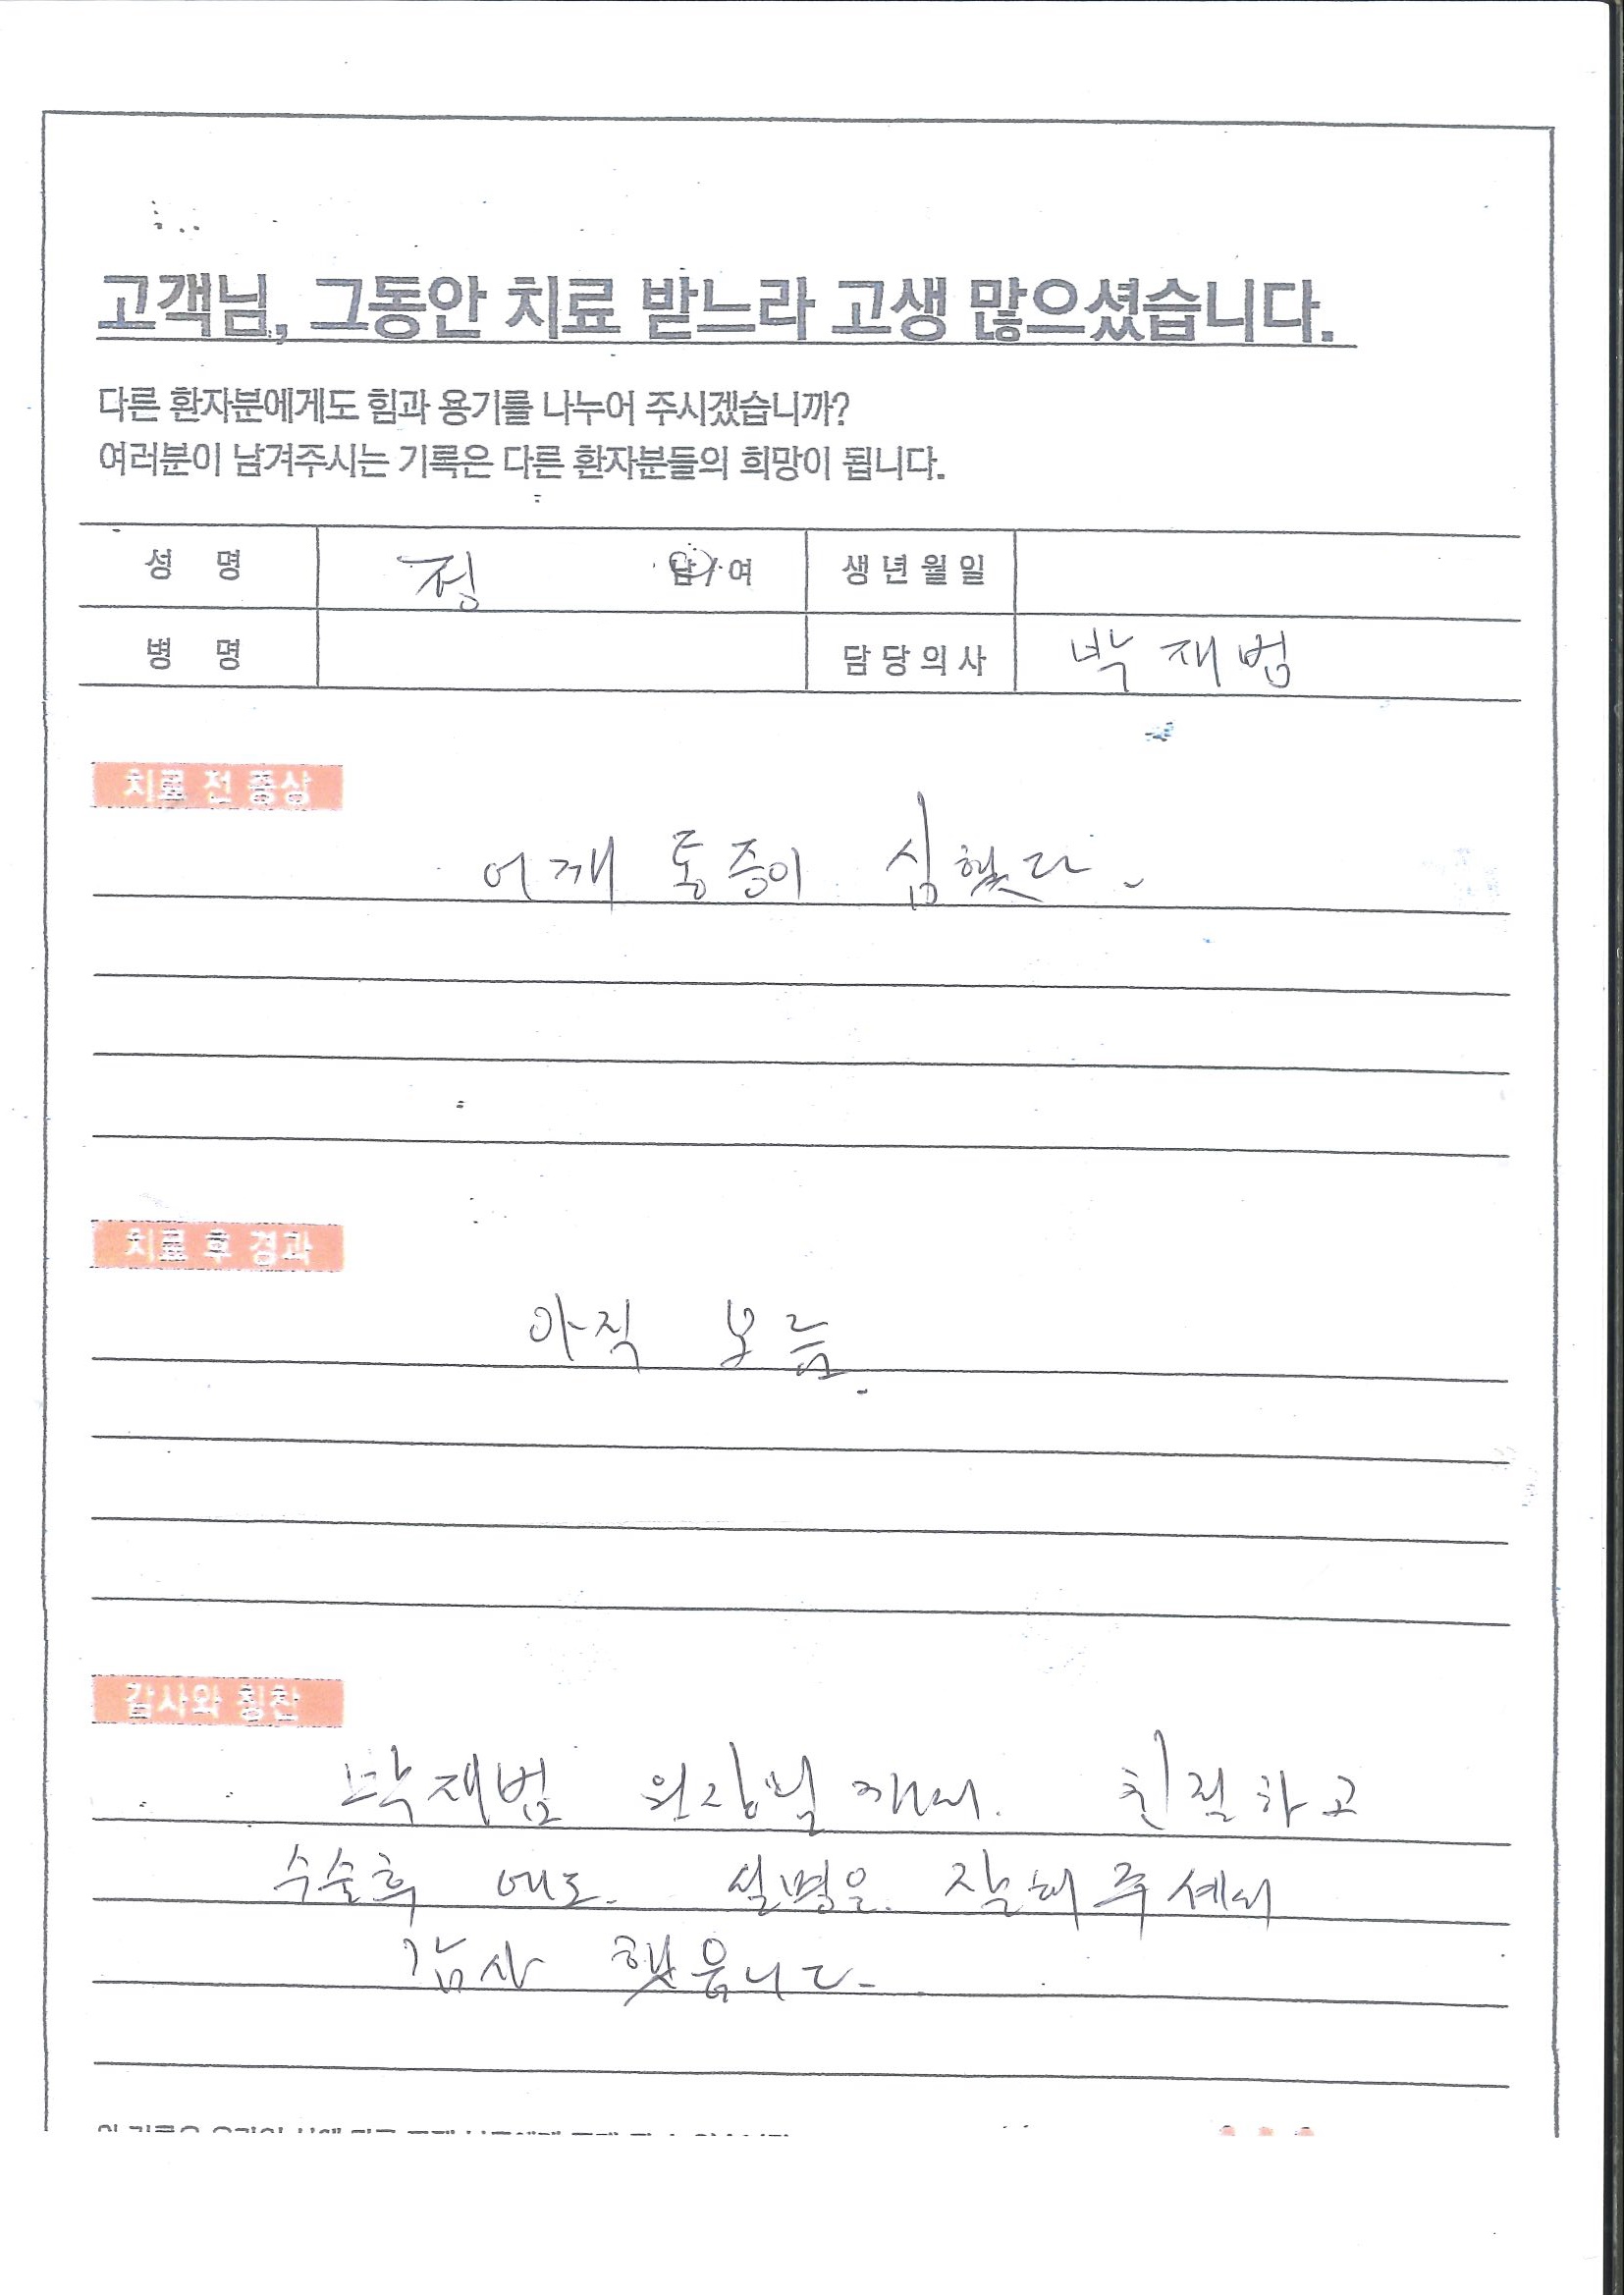 고객님, 그동안 치료 받느라 고생 많으셨습니다.
다른 환자분에게도 힘과 용기를 나누어 주시겠습니까?
여러분이 남겨주시는 기록은 다른 환자분들의 희망이 됩니다.
성 명 정 남 / 여 생년월일
병 명 담당의사 박재범
치료 전 증상
어깨 통증이 심했다.
치료 후 경과
아직 모름.
감사와 칭찬
박재범 원장님께서. 친절하고
수술후에도. 설명을. 잘해주셔서
감사 했읍니다.